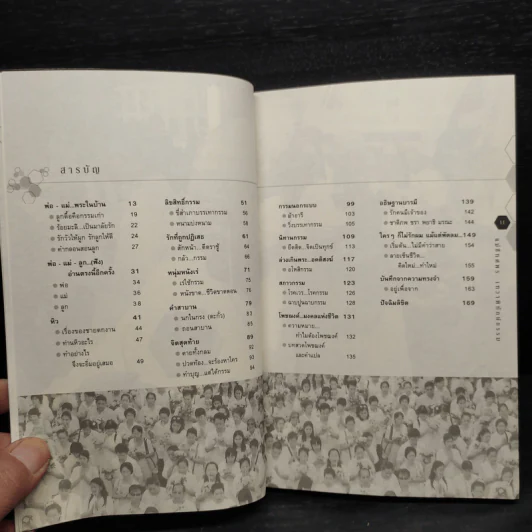 สารบัญ
พ่อ - แม่...พระในบ้าน 13
ลูกดื้อคือกรรมเก่า 19
ร้อยมะลิ...เป็นมาลัยรัก 22
รักวัวให้ผูก รักลูกให้ดี 24
ทำกลอนสอนลูก 27
พ่อ - แม่ - ลูก..(ฟัง)
อ่านตรงนี้อีกครั้ง 31
พ่อ 34
แม่ 36
ลูก 38
หิว 41
เรื่องของชายตกงาน 44
ท่านหิวอะไร 47
ทำอย่างไร
จึงจะอิ่มอยู่เสมอ 49
มิจฉสิทธิ์กรรม 51
ขี่สำเภาบรรเทากรรม 56
หนามบ่งหนาม 59
รักที่ถูกปฏิเสธ 61
67
กลัว...กรรม 68
หนุ่มหนังเร่ 71
เร่ใช้กรรม 75
หนังขาด...ชีวิตขาดตอน 76
คำสาบาน 79
นกในกรง (ตะกั่ว) 85
ถอนสาบาน 88
จิตสุดท้าย 89
ตายทั้งกลม 92
ปวดท้อง...จะร้องหาใคร 94
ทำบุญ...แต่ได้กรรม 94
กรรมนอกระบบ 99
ม้าอารี 103
วิ่งบรรเทากรรม 105
นิสานกรรม 109
อึดอัด...จึงเป็นทุกข์ 117
ล่วงเกินพระ...อดติสงฆ์ 119
อโหสิกรรม 120
สภากรรม 123
โรคเวร...โรคกรรม 126
129
โพชฌงค์..มงคลแห่งชีวิต 131
ความหมาย...
ทำไมต้องโพชฌงค์ 132
บทสวดโพชฌงค์
และคำแปล 135
อธิษฐานบารมี 139
รักตนมีเจ้าของ 142
ชาติภพ ชรา พยาธิ มรณะ 144
ใครๆ ก็ไม่รักผม แม้แต่พัดลม...149
เริ่มต้น...ไม่มีคำว่าสาย 155
ลวงเซ็นชีวิต...
คิดใหม่...ทำใหม่ 155
บันทึกจากความทรงจำ 161
อยู่เพื่อจาก 163
ปัจฉิมลิขิต 169
11